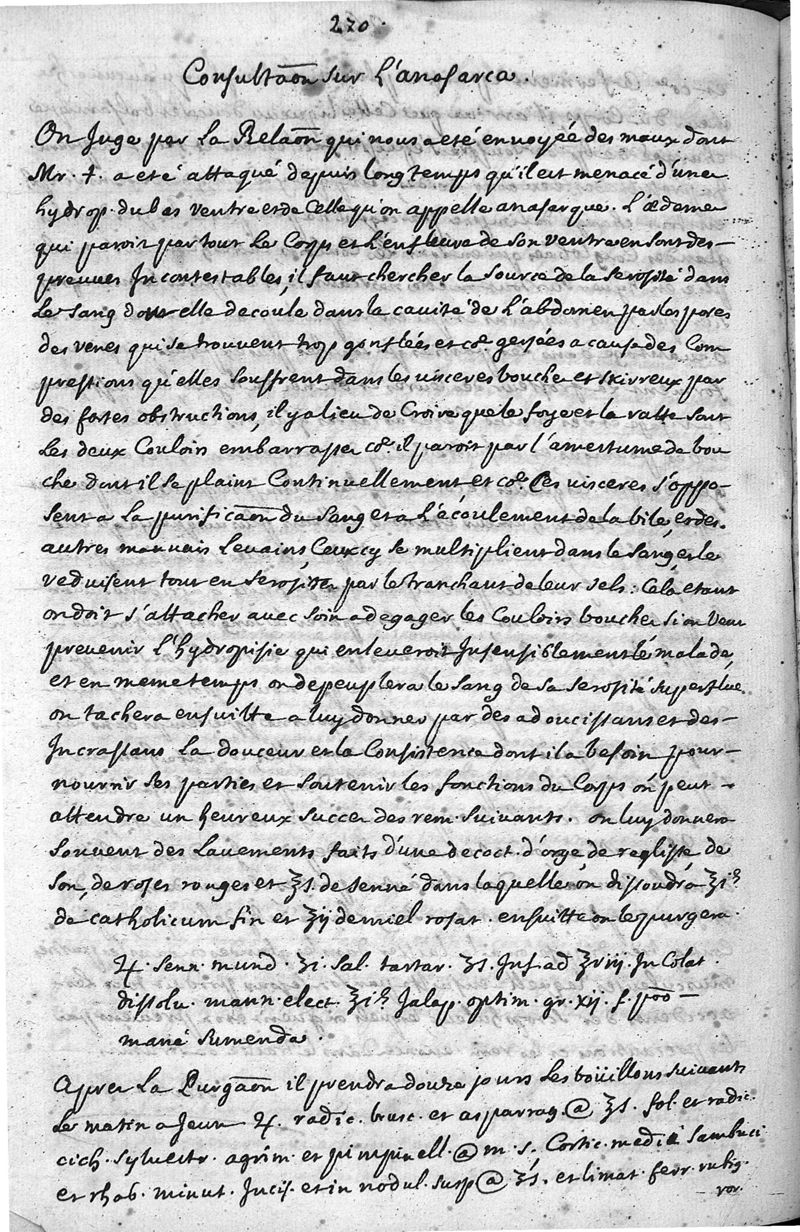 270.
Consultaõn sur L'anasarca.
On Juge par La Relaõn qui nous a eté envoyée des maux dont
Mr. †. a eté attaqué depuis longtemps qu'il est menacé d'une
hydrop. du bas ventre et de Celle qu'on appelle anasarque. L'œdeme
qui paroit par tout Le Corps et L'enfleure de son ventre en sont des
preuves Incontestables, il faut chercher la source de la serosité dans
Le sang dont elle decoule dans la cavité de L'abdomen par les pores
des venes qui se trouvent trop gonflées et coe. gersées a cause des Com
pressions qu'elles souffrent dans les visceres bouchez et skirreux par
des fortes obstructions, il y a lieu de Croire que le foye et la ratte sont
Les deux Couloirs embarrassez coe. il paroit par l'amertume de bou
che dont il se plaint Continuellement et coe. Ces visceres s'oppo-
sent a La purificaõn du sang et a L'écoulement de la bile, et des
autres mauvais Levains Ceux cy se multiplient dans le sang et le
reduisent tout en serositez par le tranchant de leur sels. Cela etant
on doit s'attacher avec soin a degager les Couloirs bouchez si on veut
prevenir L'hydropisie qui enleveroit Insensiblement le malade,
et en meme temps on depeuplera le sang de sa serosité superflue
on tachera ensuitte a luy donner par des adoucissans et des-
Incrassans La douceur et la Consistence dont il a besoin pour-
nourrir ses parties et soutenir les fonctions du Corps on peut -
attendre un heureux succez des rem. suivants. on luy donnera
souvent des Lavements faits d'une decoct. d'orge de reglisse de
son, de roses rouges et ʒs. de senné dans laquelle on dissoudra ℥iß
de catholicum fin et ℥ij de miel rosat. ensuitte on le purgera.
♃. senn. mund. ʒi. sal. tartar. ʒs. Inf. ad ℥viij. In Colat.
dissolu. mann. elect. ℥iß Jalap. optim. gr. xij. f. poo -
mane sumenda.
Aprez La Purgaõn il prendra douze jours Les boüillons suivants
Le matin a Jeun ♃. radic. brusc. et asparrag. @ ℥s. fol. et radic.
cich. sylvestr. agrim. et pimpinell. @ m. s. Cortic. medii Sambuci
et rhab. minut. Incis. et in nodul. susp @ ʒs. et limat. ferr. rubig.